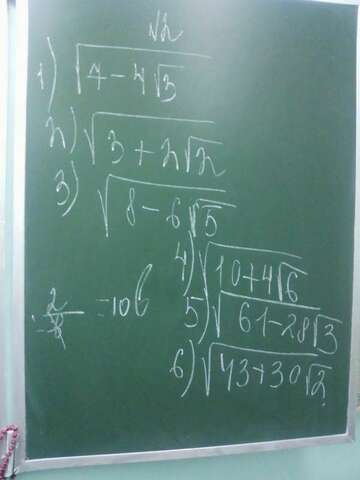 √2
1) √(7 - 4√3)
2) √(3 + 2√2)
3) √(8 - 6√5)
4) √(10 + 4√6)
5) √(61 - 28√3)
6) √(43 + 30√2)
= 10б